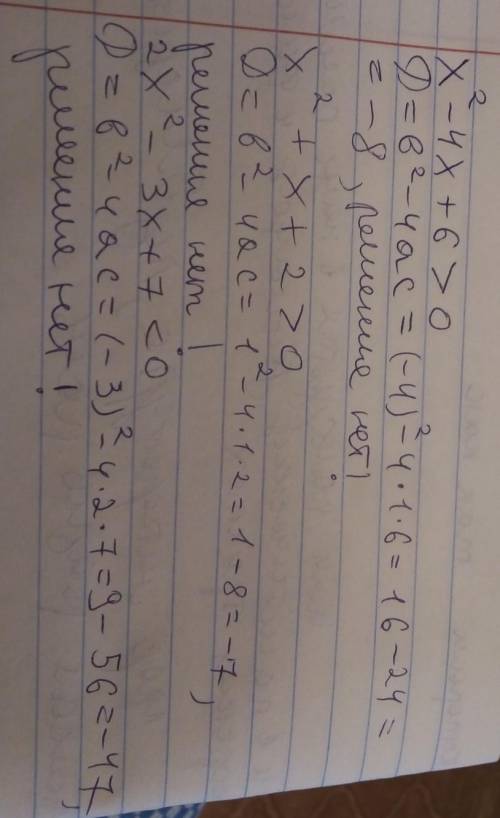 x² - 4x + 6 > 0
D = b² - 4ac = (-4)² - 4·1·6 = 16 - 24 =
= -8, решение нет!
x² + x + 2 > 0
D = b² - 4ac = 1² - 4·1·2 = 1 - 8 = -7,
решение нет!
2x² - 3x + 7 < 0
D = b² - 4ac = (-3)² - 4·2·7 = 9 - 56 = -47,
решение нет!